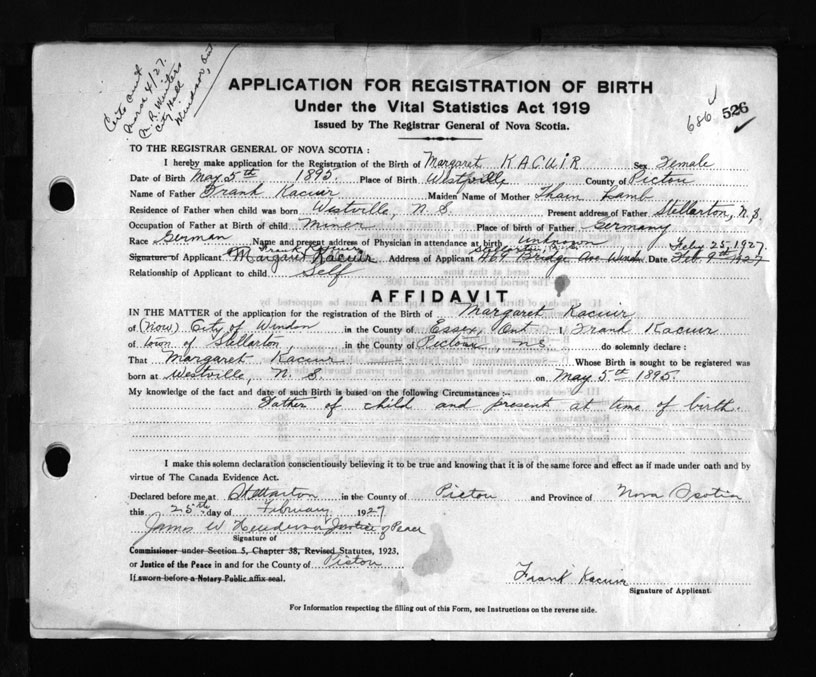 Certs Omit
March 4/27.
A. R. Winters
City Hall
Windsor, Ont
APPLICATION FOR REGISTRATION OF BIRTH
Under the Vital Statistics Act 1919
Issued by The Registrar General of Nova Scotia.
686 526
TO THE REGISTRAR GENERAL OF NOVA SCOTIA :
I hereby make application for the Registration of the Birth of Margaret KACUIR Sex Female
Date of Birth May 5th 1895. Place of Birth Westville County of Pictou
Name of Father Frank Kacuir Maiden Name of Mother Lamb
Residence of Father when child was born Westville, N. S. Present address of Father Stellarton, N.S.
Occupation of Father at Birth of child Miner Place of birth of Father Germany
Race German Name and present address of Physician in attendance at birth Unknown
Frank Kacuir Stellarton, N.S. Feby 25, 1927.
Signature of Applicant Margaret Kacuir Address of Applicant 469 Bridge Ave Windsr. Date Feb. 9th 1927
Relationship of Applicant to child Self
AFFIDAVIT
IN THE MATTER of the application for the registration of the Birth of Margaret Kacuir
of (Now) City of Windsr in the County of Essex, Ont I, Frank Kacuir
of town of Stellarton, in the County of Pictou, N.S. do solemnly declare :
That Margaret Kacuir Whose Birth is sought to be registered was
born at Westville, N. S. on May 5th 1895.
My knowledge of the fact and date of such Birth is based on the following Circumstances :-
Father of child and present at time of birth.
I make this solemn declaration conscientiously believing it to be true and knowing that it is of the same force and effect as if made under oath and by
virtue of The Canada Evidence Act.
Declared before me, at Stellarton in the County of Pictou and Province of Nova Scotia
this 25th day of February, 1927
James W Henderson Justice of Peace
Signature of
Commissioner under Section 5, Chapter 38, Revised Statutes, 1923,
or Justice of the Peace in and for the County of Pictou
If sworn before a Notary Public affix seal.
Frank Kacuir
Signature of Applicant.
For Information respecting the filling out of this Form, see Instructions on the reverse side.